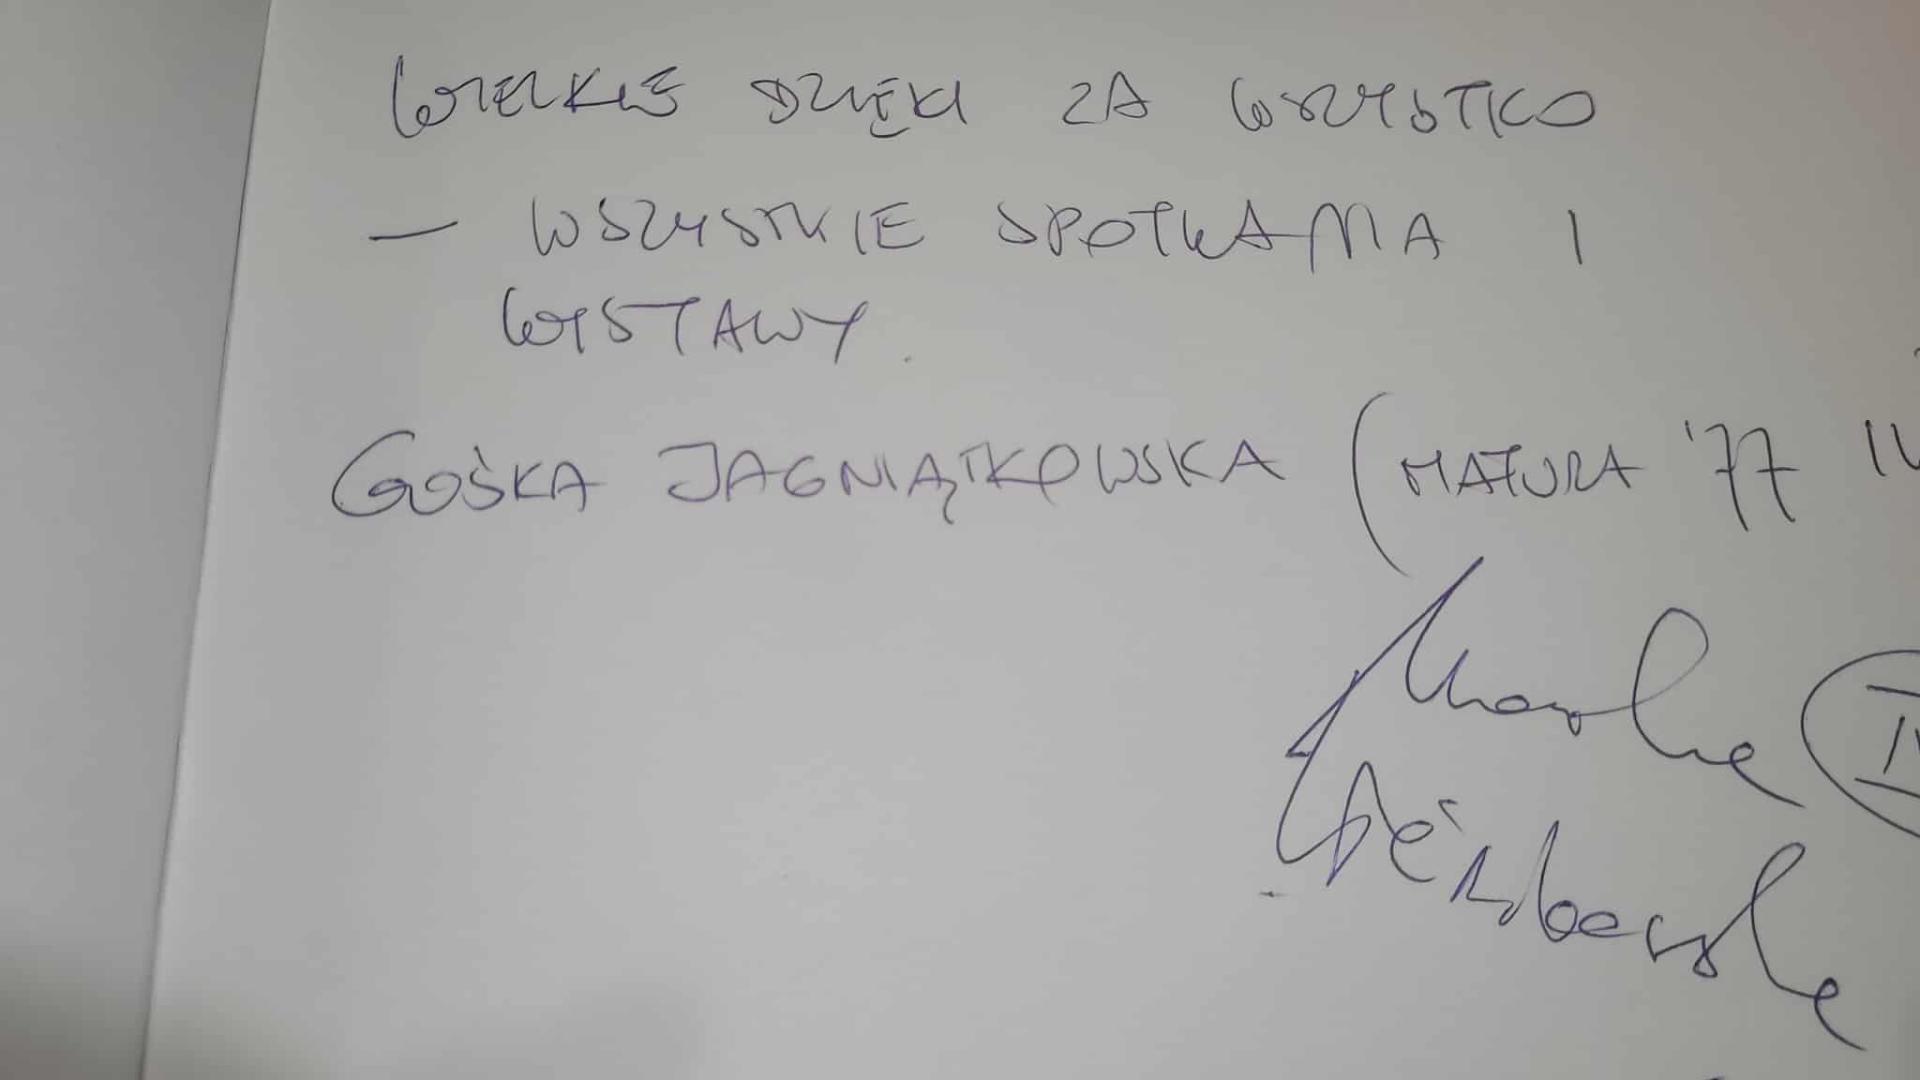 WIELKIE DZIĘKI ZA WSZYSTKO
— WSZYSTKIE SPOTKANIA I
WYSTAWY.
GOŚKA JAGNIĄTKOWSKA (MATURA '77 IV